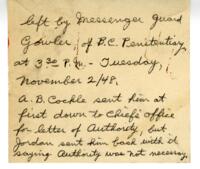 left by Messenger Guard
Gowler, of B.C. Penitentiary
at 3³⁰ P.M. - Tuesday,
November 2/48.
A. B. Cockle sent him at
first down to Chief's office
for letter of Authority, but
Jordan sent him back with it
saying Authority was not necessary.